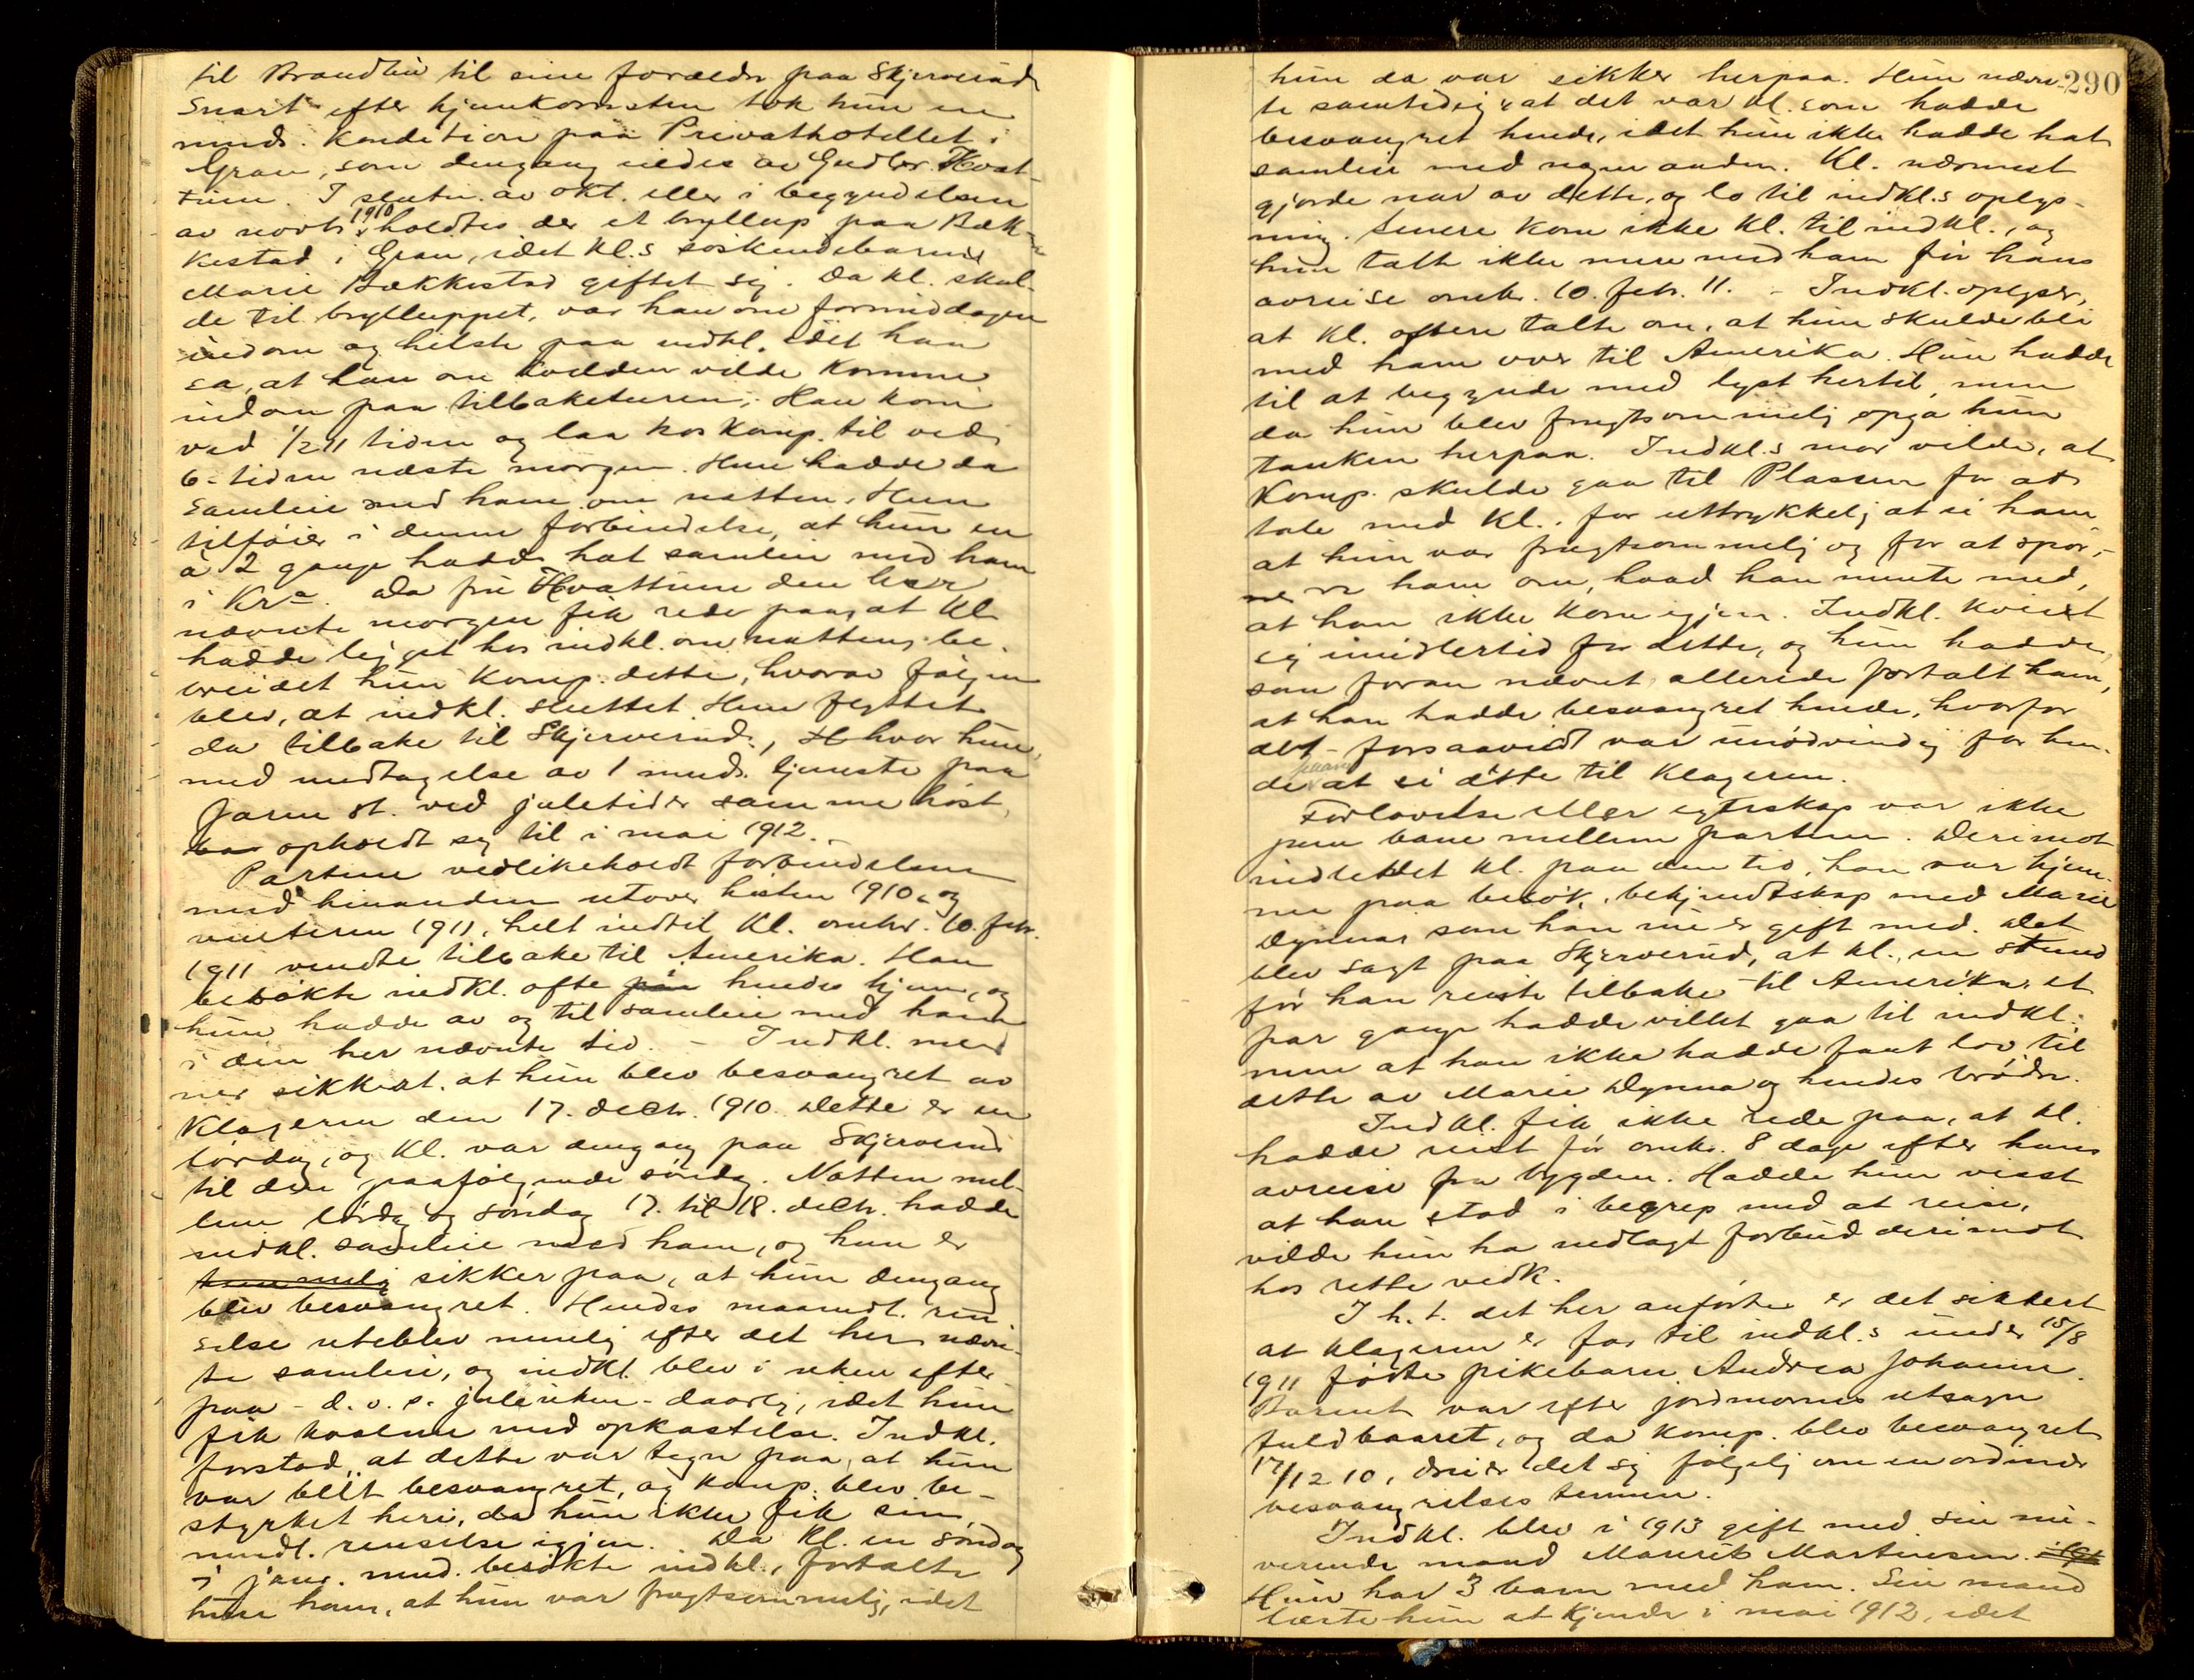 til Brandbu til sine forældr paa Skjerverud
Snart efter hjemkomsten tok hun en
mnds. Kondition paa Privathotellet i
Gran, som dengang eiedes av Gudbr. Hvat-
tum. I slutn. av okt. eller i begyndelsen
av novbr. 1910 holdtes der et bryllup paa Bæk-
kestad i Gran, idet kl.s søskendebarn
Marie Bækkestad giftet sig. Da kl. skul-
de til brylluppet, var han om formiddagen
indom og hilste paa indkl. idet han
sa, at han om kvelden vilde komme
indom paa tilbaketuren. Han kom
ved 1/2 11 tiden og laa hos komp. til ved
6-tiden næste morgen. Hun hadde da
samleie med ham om natten. Hun
tilføier i denne forbindelse, at hun en
a 2 gange hadde hat samleie med ham
i Kra. Da fru Hvattum den her
nævnte morgen fik rede paa, at kl.
hadde ligget hos indkl. om natten, be-
breidet hun komp. dette, hvorav følgen
blev, at indkl. sluttet. Hun flyttet
da tilbake til Skjerverud, H hvor hun,
med undtagelse av 1 mnds. tjeneste paa
Jaren st. ved juletider samme høst,
opholdt sig til i mai 1912.
Partene vedlikeholdt forbindelsen
med hinanden utover høsten 1910 og
vinteren 1911, helt indtil kl. omkr. 10. febr.
1911 vendte tilbake til Amerika. Han
besøkte indkl. ofte paa hendes hjem, og
hun hadde av og til samleie med ham
i den her nævnte tid. - Indkl. me-
ner sikkert, at hun blev besvangret av
Klageren den 17. decbr. 1910. Dette er en
lørdag, og kl. var dengang paa Skjerverud
til den paafølgende søndag. Natten mel-
lem lørdag og søndag 17. til 18. decbr. hadde
indkl. samleie med ham, og hun er
temmelig sikker paa, at hun dengang
blev besvangret. Hendes maanedl. ren-
selse uteblev nemlig efter det her nævn-
te samleie, og indkl. blev i uken efter-
paa - d.v.s. juleuken - daarlig, idet hun
fik kvalme med opkastelse. Indkl.
forstod, at dette var tegn paa, at hun
var blit besvangret, og komp. blev be-
styrket heri, da hun ikke fik sin
mndl. renselse igjen. Da kl. en søndag
i jan. mnd. besøkte indkl., fortalte
hun ham, at hun var frugtsommelig, idet
290
hun da var sikker herpaa. Hun nævn-
te samtidig at det var kl. som hadde
besvangret hende, idet hun ikke hadde hat
samleie med nogen anden. Kl. nærmest
gjorde nar av dette, og lo til indkl.s oplys-
ning. Senere kom ikke kl. til indkl., og
hun talte ikke mere med ham før hans
avreise omkr. 10. febr. 11. - Indkl. oplyser,
at kl. oftere talte om, at hun skulde bli
med ham over til Amerika. Hun hadde
til at begynde med lyst hertil, men
da hun blev frugtsommelig opga hun
tanken herpaa. Indkl.s mor vilde, at
Komp. skulde gaa til Plassen for at
tale med kl., for uttrykkelig at si ham
at hun var frugtsommelig og for at spør-
re ham om, hvad han mente med,
at han ikke kom igjen. Indkl. kviet
sig imidlertid for dette, og hun hadde,
som foran nævnt allerede fortalt ham,
at han hadde besvangret hende, hvorfor
det forsaavidt var unødvendig for hen-
de at si dette til Klageren.
Forlovelse eller egteskap var ikke
paa bane mellem partene. Derimot
indledet kl. paa den tid, han var hjem-
me paa besøk, bekjendtskap med Marie
Dynna, som han nu er gift med. Det
blev sagt paa Skjerverud, at kl., en stund
før han reiste tilbake til Amerika, et
par gange hadde villet gaa til indkl.,
men at han ikke hadde faat lov til
dette av Marie Dynna og hendes brødre.
Indkl. fik ikke rede paa, at kl.
hadde reist før omkr. 8 dage efter hans
avreise fra bygden. Hadde hun visst
at han stod i begrep med at reise,
vilde hun ha nedlagt forbud derimot
hos rette vedk.
I h. t. det her anførte er det sikkert
at klageren er far til indkl.s under 15/8
1911 fødte pikebarn Andrea Johanne.
Barnet var efter jordmorens utsagn
fuldbaaret, og da komp. blev besvangret
17/12 10, dreier det sig følgelig om en ordinær
besvangrelses termin.
Indkl. blev i 1913 gift med sin nu-
værende mand Maurits Martinsen.
Hun har 3 barn med ham. Sin mand
lærte hun at kjende i mai 1912, idet